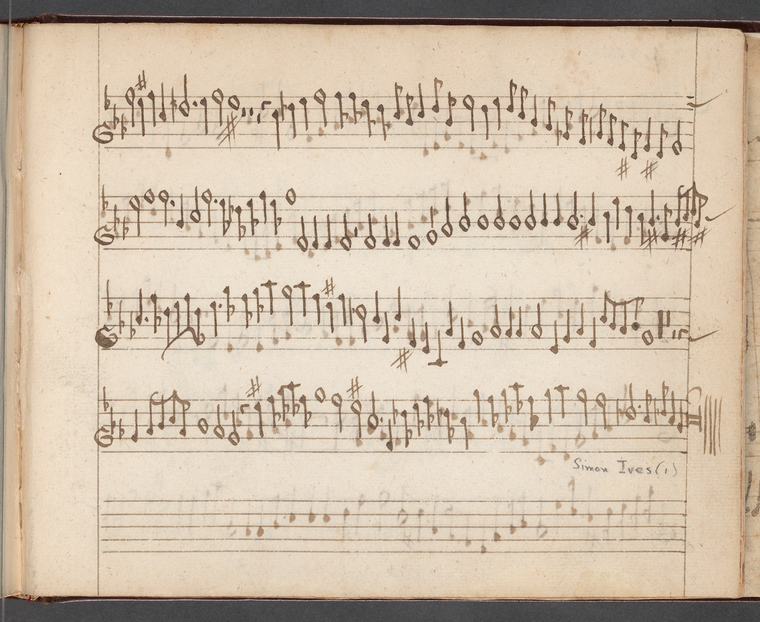 Simon Ives (1)